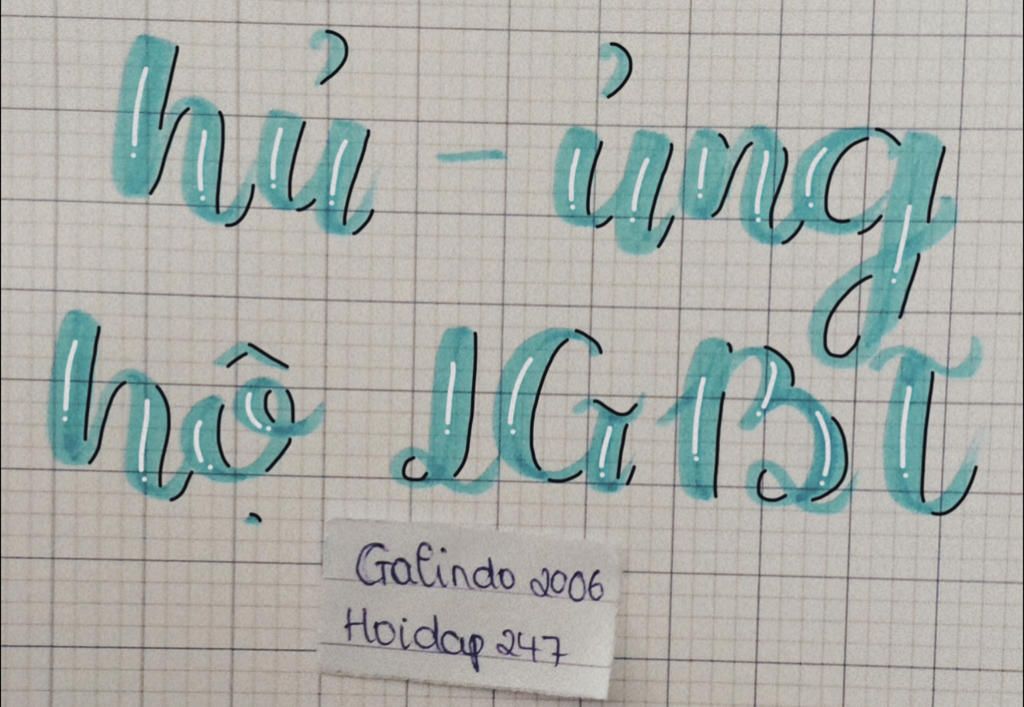 hủ - ủng
hộ LGBT
Galindo 2006
Hoidap 247